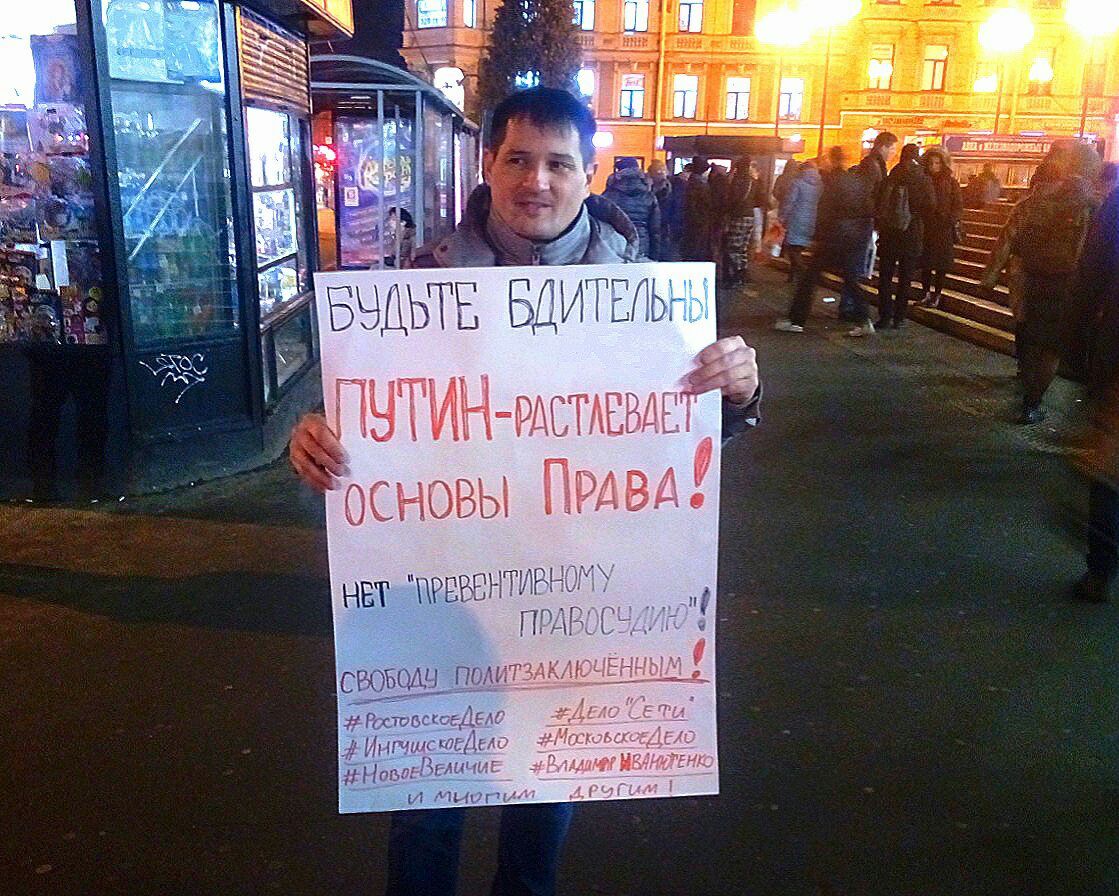 БУДЬТЕ БДИТЕЛЬНЫ
ПУТИН-РАСТЛЕВАЕТ
ОСНОВЫ ПРАВА!
НЕТ "ПРЕВЕНТИВНОМУ
ПРАВОСУДИЮ"!
СВОБОДУ ПОЛИТЗАКЛЮЧЁННЫМ!
#РостовскоеДело #Дело"Сети"
#ИнгушскоеДело #МосковскоеДело
#НовоеВеличие #Владимир ИВАНЮТЕНКО
и многим другим!